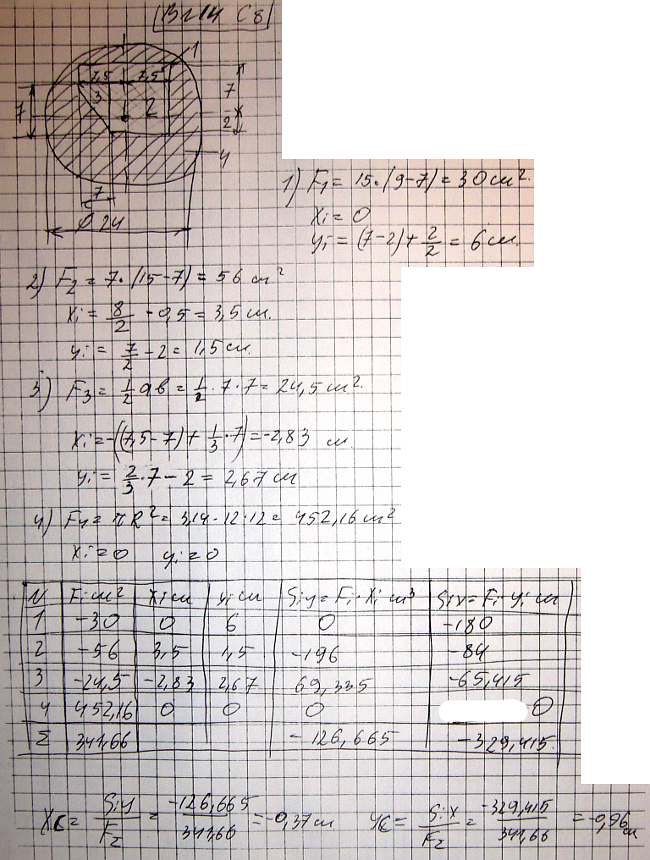 Вг14 С8
1
7,5 7,5
7
3 2
7
2
4
7
Ø 24
1) F1 = 15·(9-7) = 30 см².
Xi = 0
yi = (7-2) + 2/2 = 6 см.
2) F2 = 7·(15-7) = 56 см²
Xi = 8/2 - 0,5 = 3,5 см.
yi = 7/2 - 2 = 1,5 см.
3) F3 = 1/2 ab = 1/2 · 7 · 7 = 24,5 см².
Xi = -((7,5-7) + 1/3 · 7) = -2,83 см
yi = 2/3 · 7 - 2 = 2,67 см
4) F4 = πR² = 3,14 · 12 · 12 = 452,16 см²
Xi = 0 yi = 0
N Fi см² Xi см yi см Siy = Fi · Xi см³ Six = Fi · yi см
1 -30 0 6 0 -180
2 -56 3,5 1,5 -196 -84
3 -24,5 -2,83 2,67 69,335 -65,415
4 452,16 0 0 0 0
Σ 341,66 -126,665 -329,415
Xc = Siy/FΣ = -126,665/341,66 = -0,37 см yc = Six/FΣ = -329,415/341,66 = -0,96 см